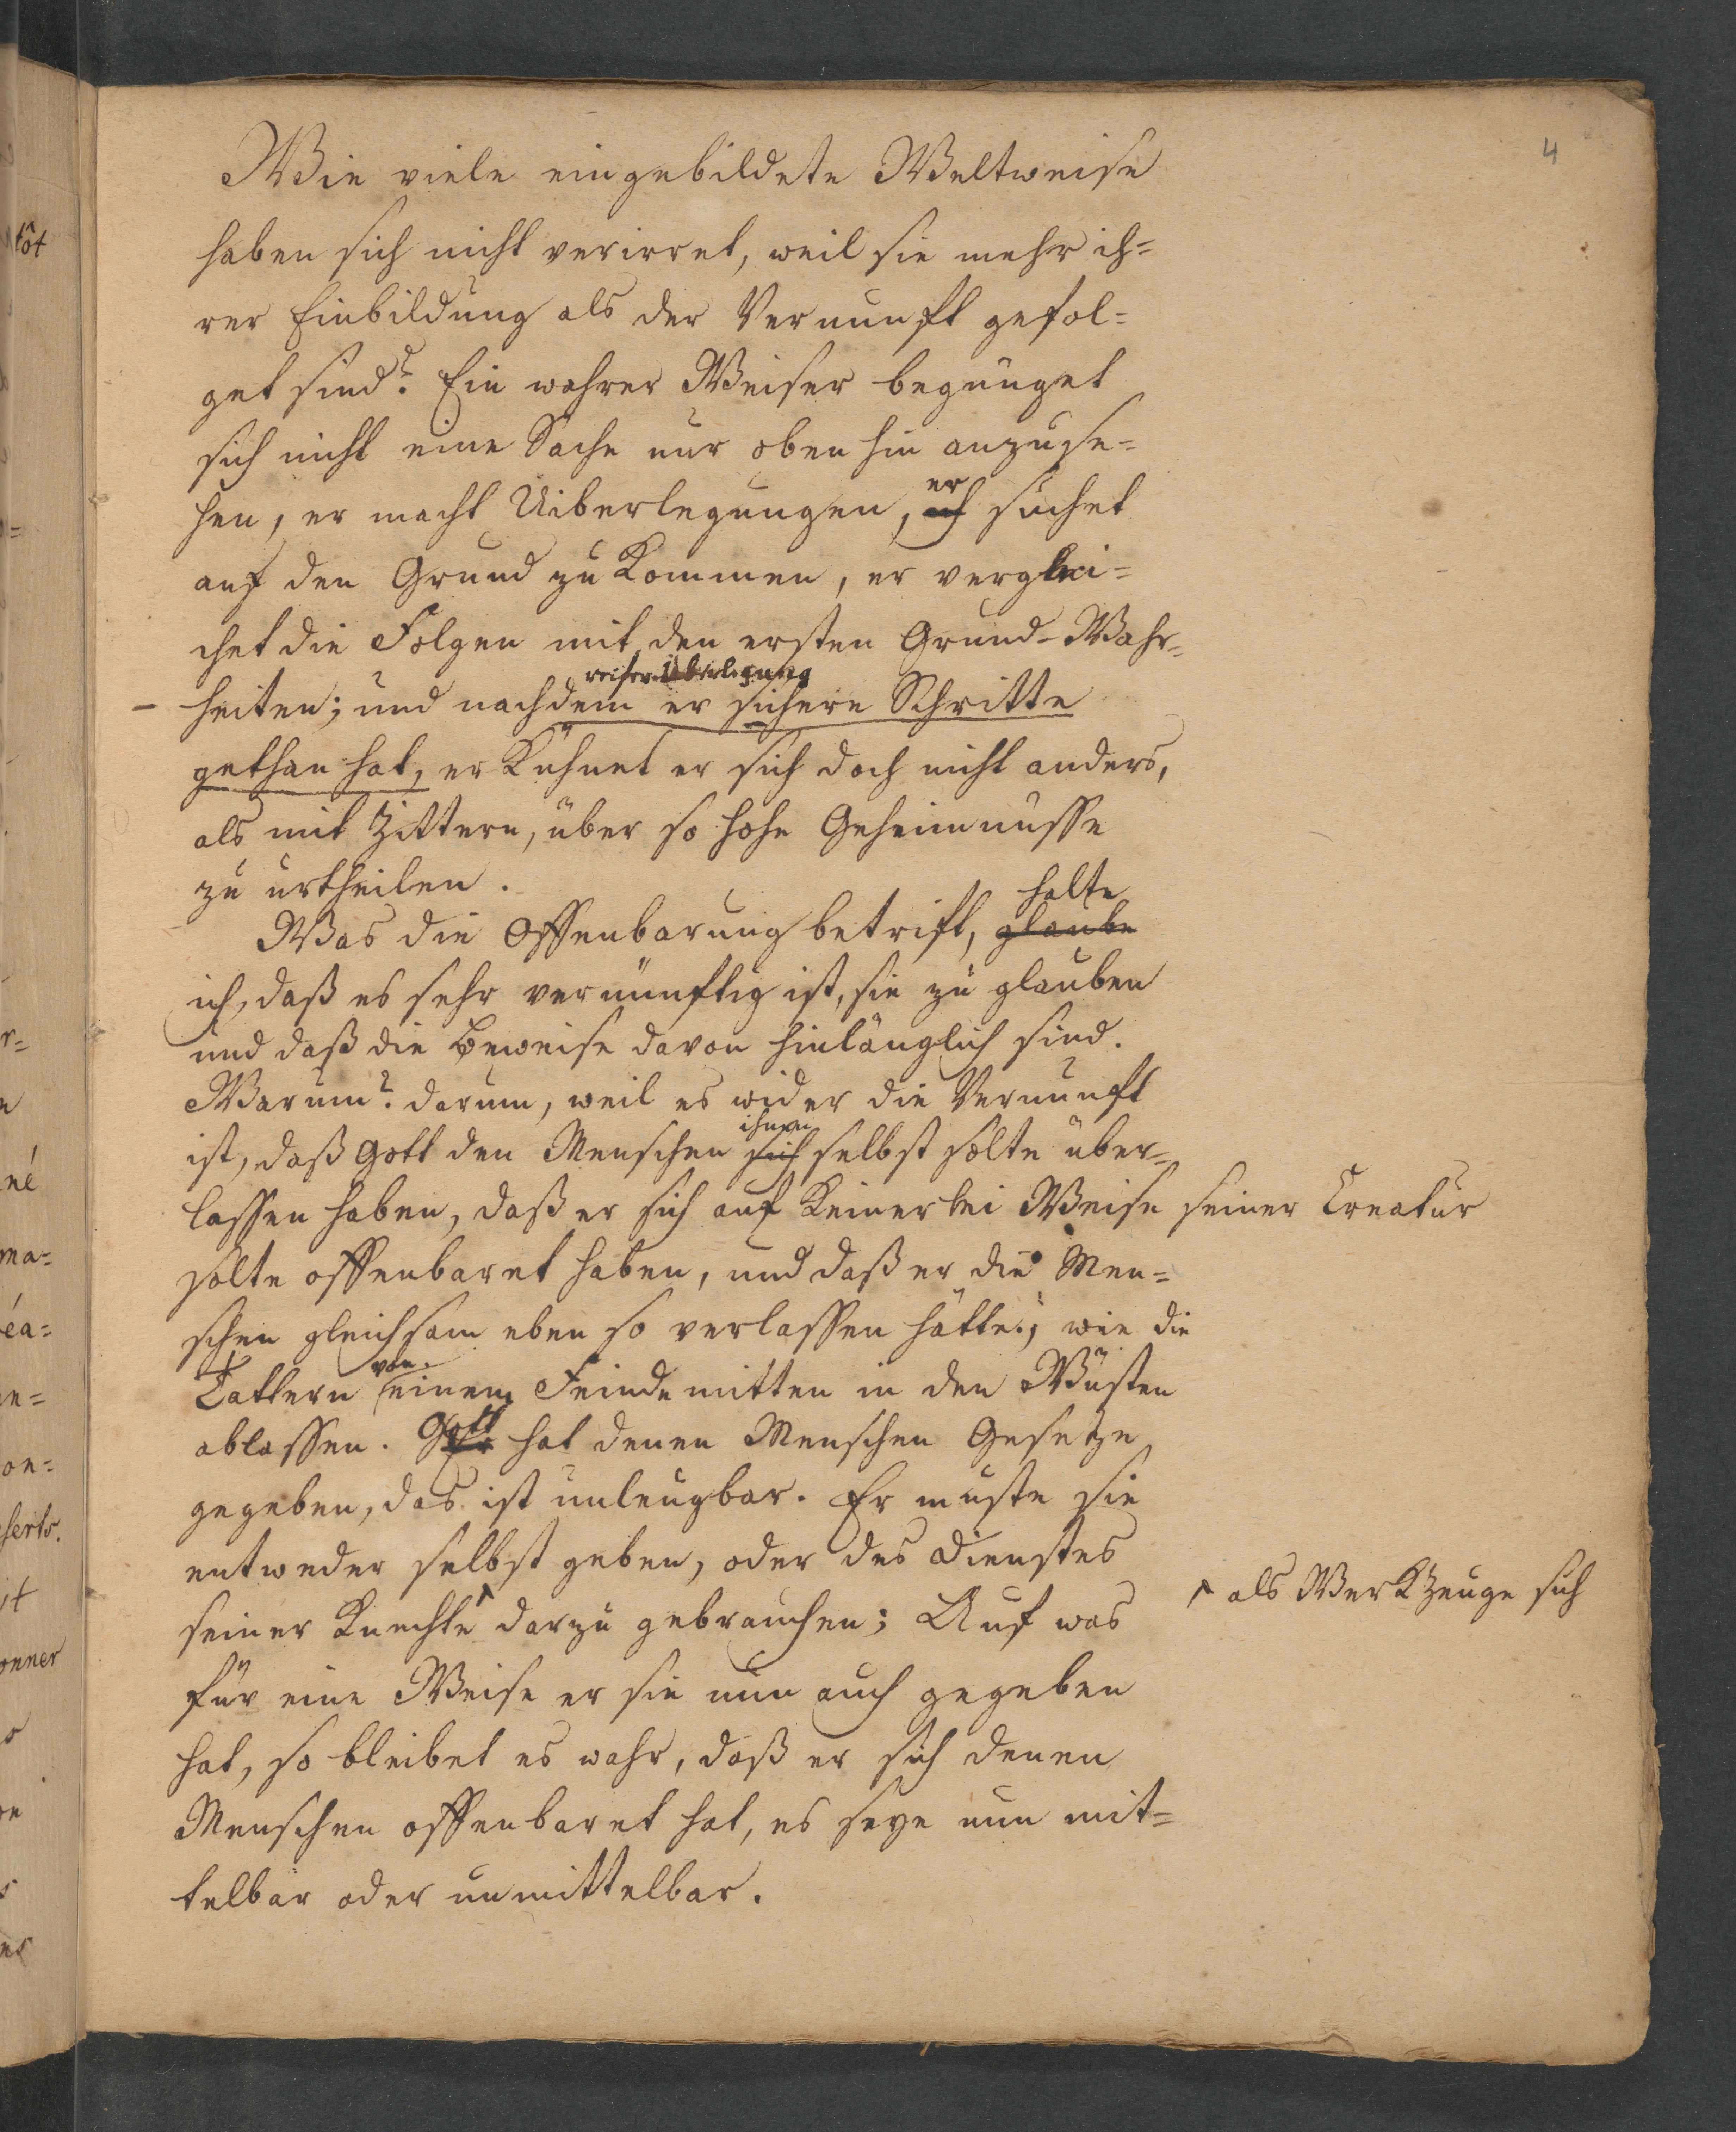 4
Wie viele eingebildete Weltweise
haben sich nicht verirret, weil sie mehr ih=
rer Einbildung als der Vernunft gefol=
get sind? Ein wahrer Weiser begnüget
sich nicht eine Sache nur oben hin anzuse=
er
hen, er macht Uiberlegungen, suchet
auf den Grund zu Kommen, er verglei=
chet die Folgen mit den ersten Grund-Wahr=
reifer Überlegung
– heiten; und nachdem er sichere Schritte
gethan hat, er Kühnet er sich doch nicht anders,
als mit Zittern, über so hohe Geheimnüsse
zu urtheilen.
halte
Was die Offenbarung betrift, glaube
ich, daß es sehr vernünftig ist, sie zu glauben
und daß die Beweise davon hinlänglich sind.
Warum? darum, weil es wider die Vernunft
ihnen
ist, daß Gott den Menschen sich selbst solte über=
lassen haben, daß er sich auf Keinerlei Weise seiner Creatur
solte offenbaret haben, und daß er die Men=
schen gleichsam eben so verlassen hätte, wie die
von
Tattern einem Feinde mitten in den Wüsten
ablassen. Gott hat denen Menschen Gesetze
gegeben, das ist unleugbar. Er muste sie
entweder selbst geben, oder des Dienstes
seiner Knechte darzu gebrauchen; Auf was
als WerkZeuge sich
für eine Weise er sie nun auch gegeben
hat, so bleibet es wahr, daß er sich denen
Menschen offenbaret hat, es seye nun mit=
telbar oder unmittelbar.
tôt
né
ma=
éa=
en=
on=
serts.
it
onner